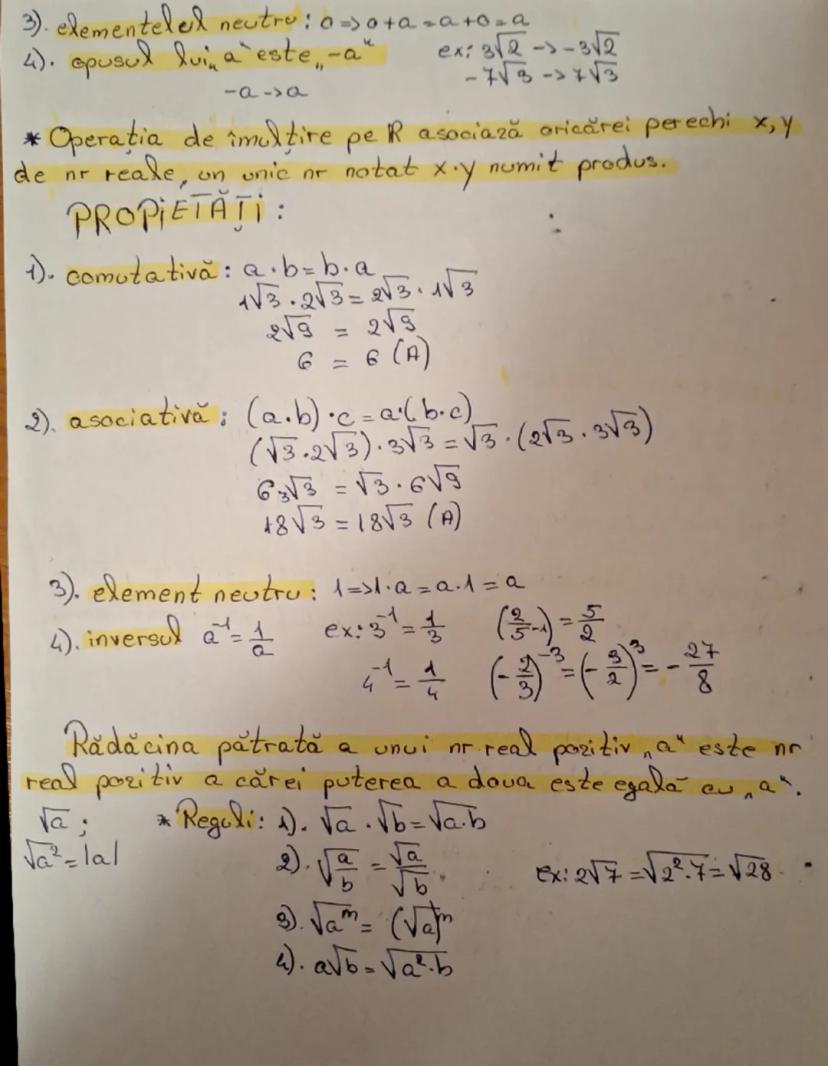 3). elementelel neutru: 0 => 0 + a = a + 0 = a
4). opusul lui „a" este „-a" ex: 3√2 -> -3√2
-a -> a -7√3 -> 7√3
* Operația de îmulțire pe R asociază oricărei perechi x, y
de nr reale, un unic nr notat x·y numit produs.
PROPIETĂȚI:
1). comutativă: a · b = b · a
1√3 · 2√3 = 2√3 · 1√3
2√9 = 2√9
6 = 6 (A)
2). asociativă: (a·b)·c = a·(b·c)
(√3 · 2√3) · 3√3 = √3 · (2√3 · 3√3)
6·3√3 = √3 · 6√9
18√3 = 18√3 (A)
3). element neutru: 1 => 1·a = a·1 = a
4). inversul a⁻¹ = 1/a ex: 3⁻¹ = 1/3 (2/5⁻¹) = 5/2
4⁻¹ = 1/4 (-2/3)⁻³ = (-3/2)³ = -27/8
Rădăcina pătrată a unui nr. real pozitiv „a" este nr
real pozitiv a cărei puterea a doua este egală cu „a".
√a ; * Reguli: 1). √a · √b = √a·b
√a² = |a| 2). √a/b = √a/√b ex: 2√7 = √2²·7 = √28
3). √aᵐ = (√a)ᵐ
4). a√b = √a²·b